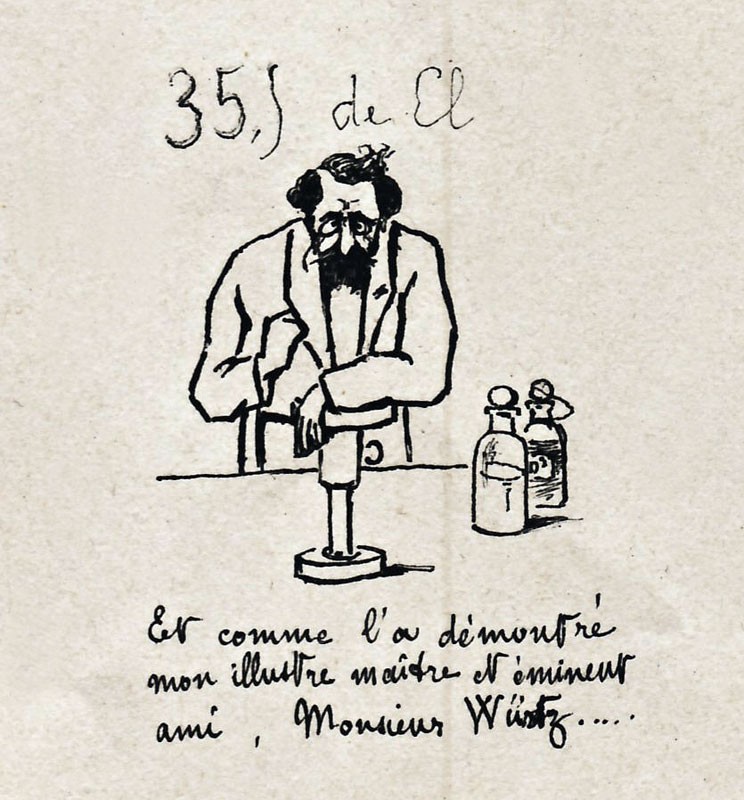 35,5 de El
Et comme l'a démontré
mon illustre maître et éminent
ami, Monsieur Würtz.....